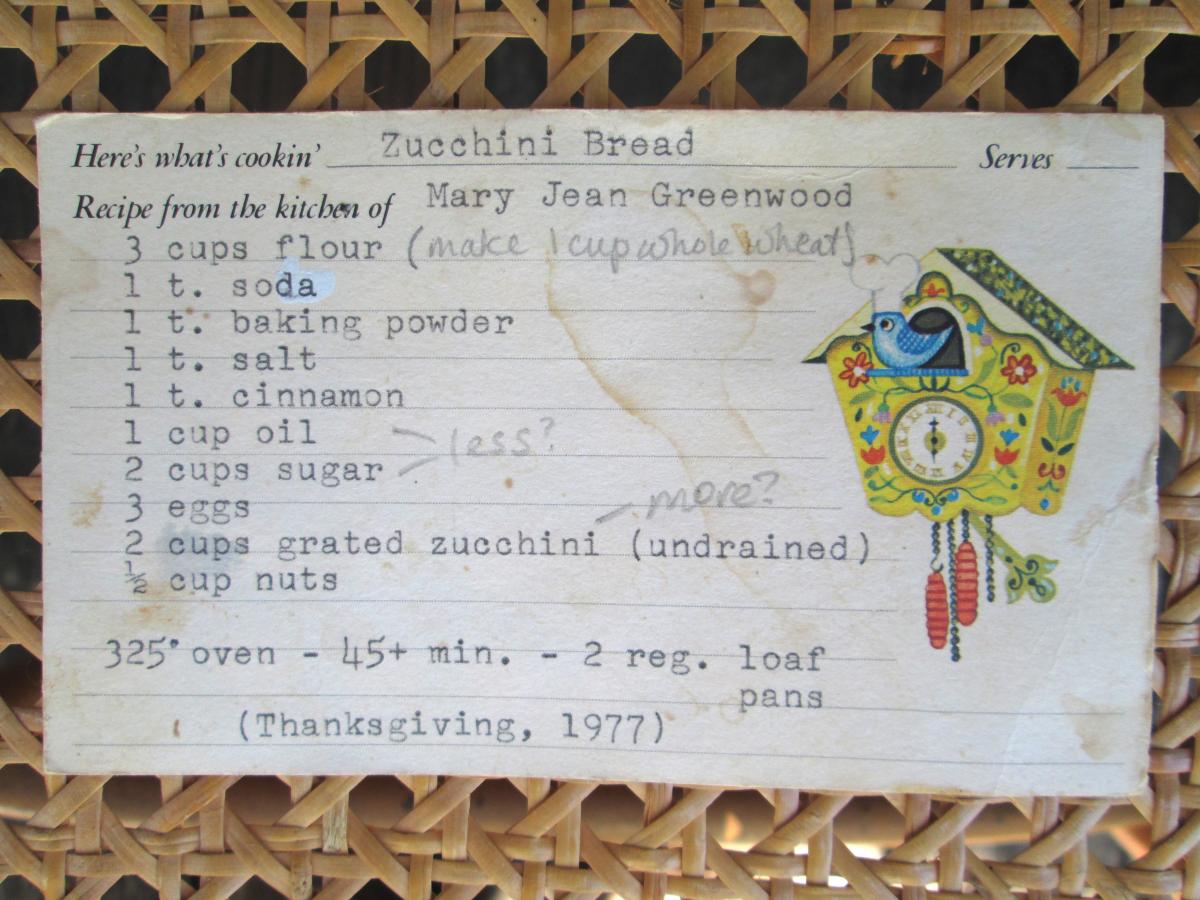 Here's what's cookin' Zucchini Bread Serves
Recipe from the kitchen of Mary Jean Greenwood
3 cups flour (make 1 cup whole wheat)
1 t. soda
1 t. baking powder
1 t. salt
1 t. cinnamon
1 cup oil
less?
2 cups sugar
3 eggs
more?
2 cups grated zucchini (undrained)
½ cup nuts
325° oven - 45+ min. - 2 reg. loaf
pans
(Thanksgiving, 1977)